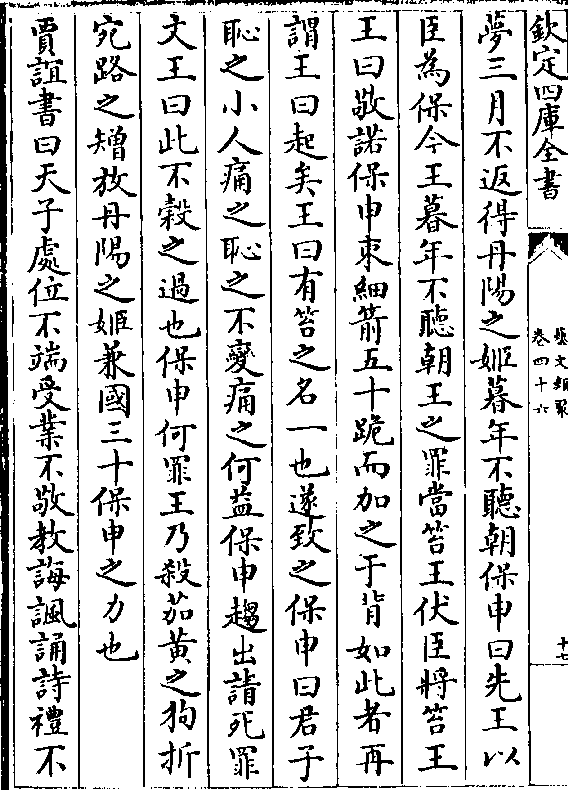 欽定四庫全書
藝文類聚
卷四十六
十七
夢三月不返得丹陽之姬暮年不聽朝保申曰先王以
臣為保今王暮年不聽朝王之罪當笞王伏臣將笞王
王曰敬諾保申束細箭五十跪而加之于背如此者再
謂王曰起矣王曰有笞之名一也遂致之保申曰君子
恥之小人痛之恥之不變痛之何益保申趨出請死罪
文王曰此不榖之過也保申何罪王乃殺茹黃之狗折
宛路之矰放丹陽之姬兼國三十保申之力也
賈誼書曰天子處位不端受業不敬教誨諷誦詩禮不